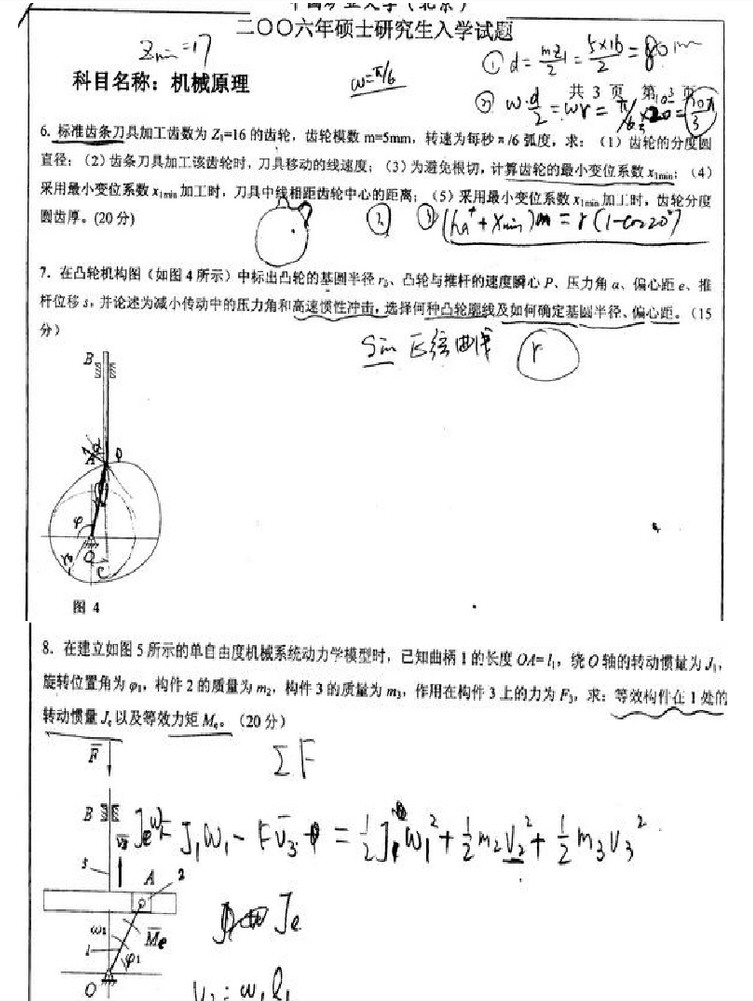 二〇〇六年硕士研究生入学试题
Zmin=17
科目名称：机械原理
ω=π/6
① d=mz1/2=5×16/2=80m
共 3 页 第 3 页
② ω·d/2=ωr=π/6×20=10π/3
6. 标准齿条刀具加工齿数为 Z1=16 的齿轮，齿轮模数 m=5mm，转速为每秒 π/6 弧度，求：（1）齿轮的分度圆
直径；（2）齿条刀具加工该齿轮时，刀具移动的线速度；（3）为避免根切，计算齿轮的最小变位系数 x1min；（4）
采用最小变位系数 x1min 加工时，刀具中线相距齿轮中心的距离；（5）采用最小变位系数 x1min 加工时，齿轮分度
圆齿厚。(20 分)
② ③ (ha*+Xmin)m=r(1-cos20°)
7. 在凸轮机构图（如图 4 所示）中标出凸轮的基圆半径 rb、凸轮与推杆的速度瞬心 P、压力角 α、偏心距 e、推
杆位移 s，并论述为减小传动中的压力角和高速惯性冲击，选择何种凸轮廓线及如何确定基圆半径、偏心距。（15
分）
Sin 正弦曲线 r
B
A
φ
O
e
图 4
8. 在建立如图 5 所示的单自由度机械系统动力学模型时，已知曲柄 1 的长度 OA=l1，绕 O 轴的转动惯量为 J1，
旋转位置角为 φ1，构件 2 的质量为 m2，构件 3 的质量为 m3，作用在构件 3 上的力为 F3，求：等效构件在 1 处的
转动惯量 Je 以及等效力矩 Me。（20 分）
F
ΣF
B
J1ω1-Fv3=1/2J1ω1²+1/2m2v2²+1/2m3v3²
v3
3
A 2
Je
ω1
Me
1
φ1
O
v2=ω1l1